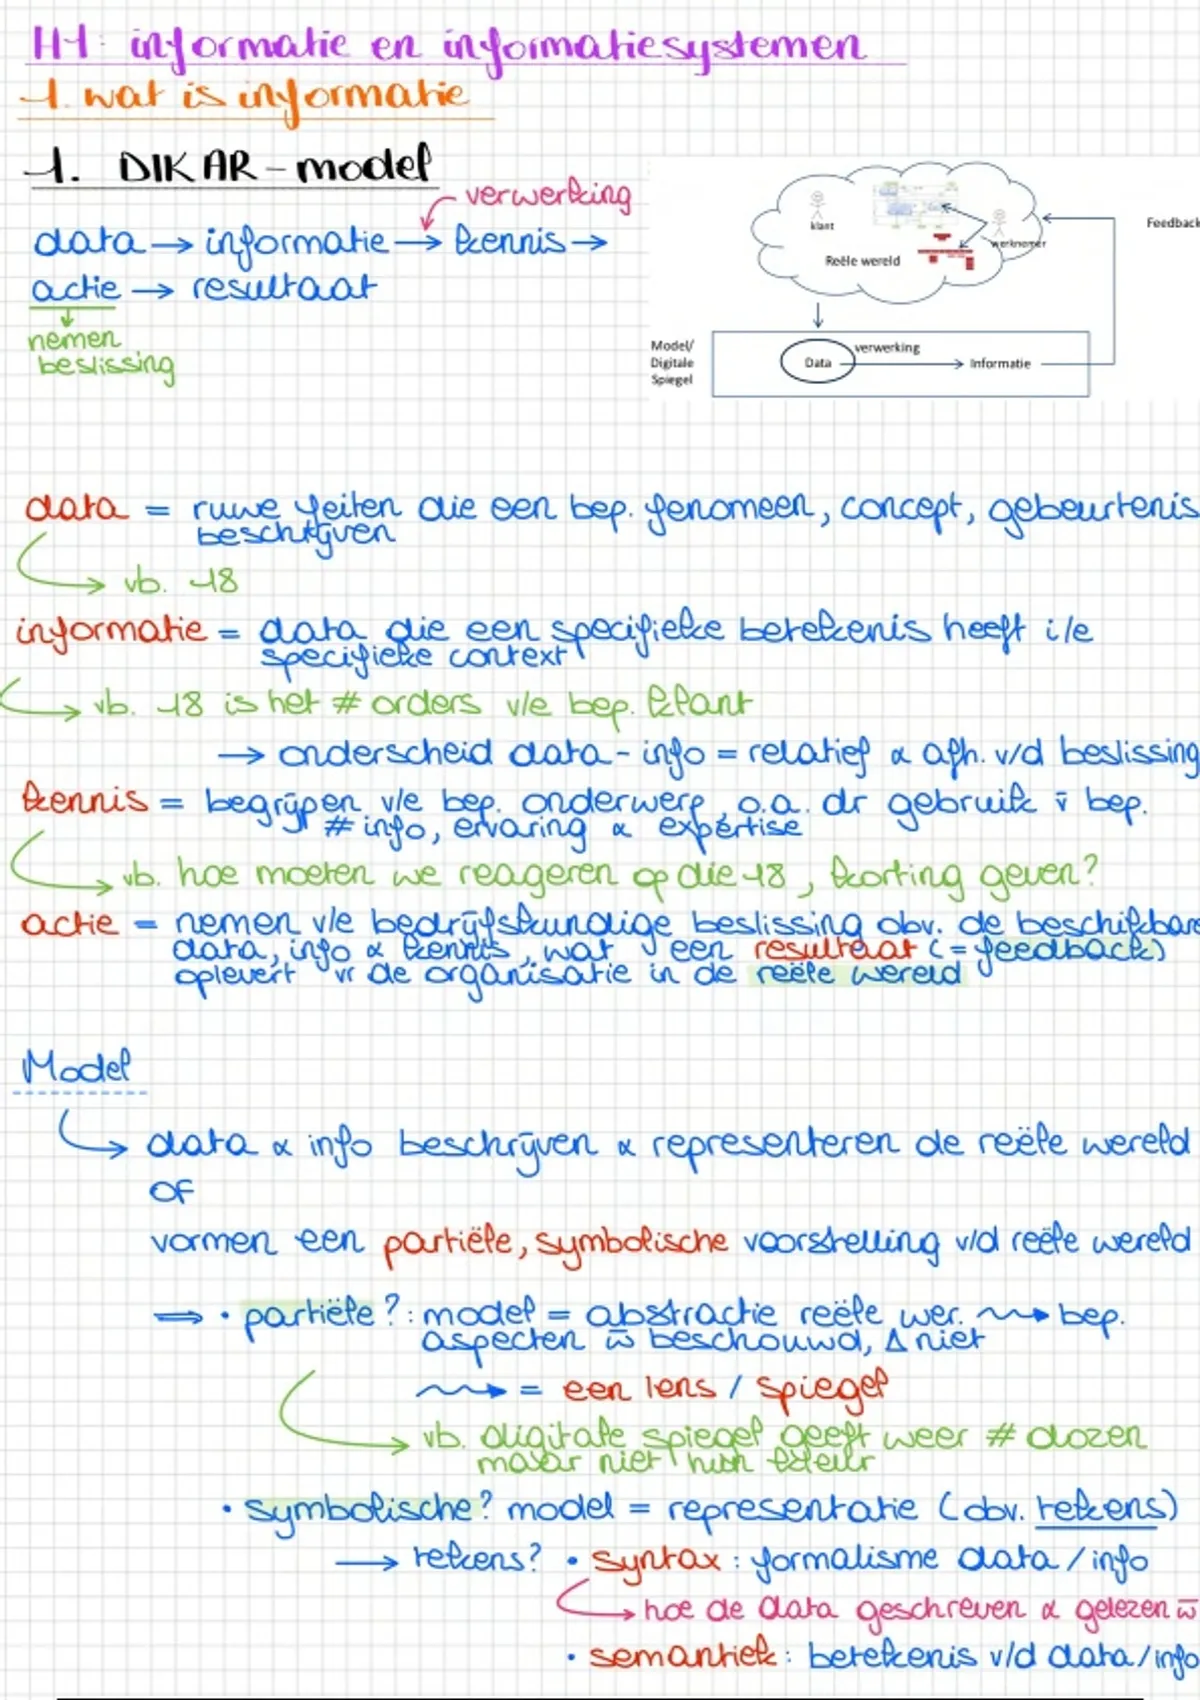 H1: informatie en informatiesystemen
1. wat is informatie
1. DIKAR-model
verwerking
data → informatie → kennis →
actie → resultaat
nemen
beslissing
klant
werknemer
Reële wereld
Feedback
Model/
Digitale
Spiegel
Data
verwerking
Informatie
data = ruwe feiten die een bep. fenomeen, concept, gebeurtenis
beschrijven
→ vb. 18
informatie = data die een specifieke betekenis heeft i/e
specifieke context
→ vb. 18 is het # orders v/e bep. klant
→ onderscheid data - info = relatief & afh. v/d beslissing
kennis = begrijpen v/e bep. onderwerp, o.a. dr gebruik v̄ bep.
# info, ervaring & expertise
→ vb. hoe moeten we reageren op die 18, korting geven?
actie = nemen v/e bedrijfskundige beslissing obv. de beschikbare
data, info & kennis, wat een resultaat (= feedback)
oplevert vr de organisatie in de reële wereld
Model
→ data & info beschrijven & representeren de reële wereld
OF
vormen een partiële, symbolische voorstelling v/d reële wereld
⇒ • partiële?: model = abstractie reële wer. ⇝ bep.
aspecten w̄ beschouwd, Δ niet
⇝ = een lens / spiegel
→ vb. digitale spiegel geeft weer # dozen
maar niet hun kleur
• symbolische? model = representatie (obv. tekens)
→ tekens? • syntax: formalisme data/info
→ hoe de data geschreven & gelezen w̄
• semantiek: betekenis v/d data/info